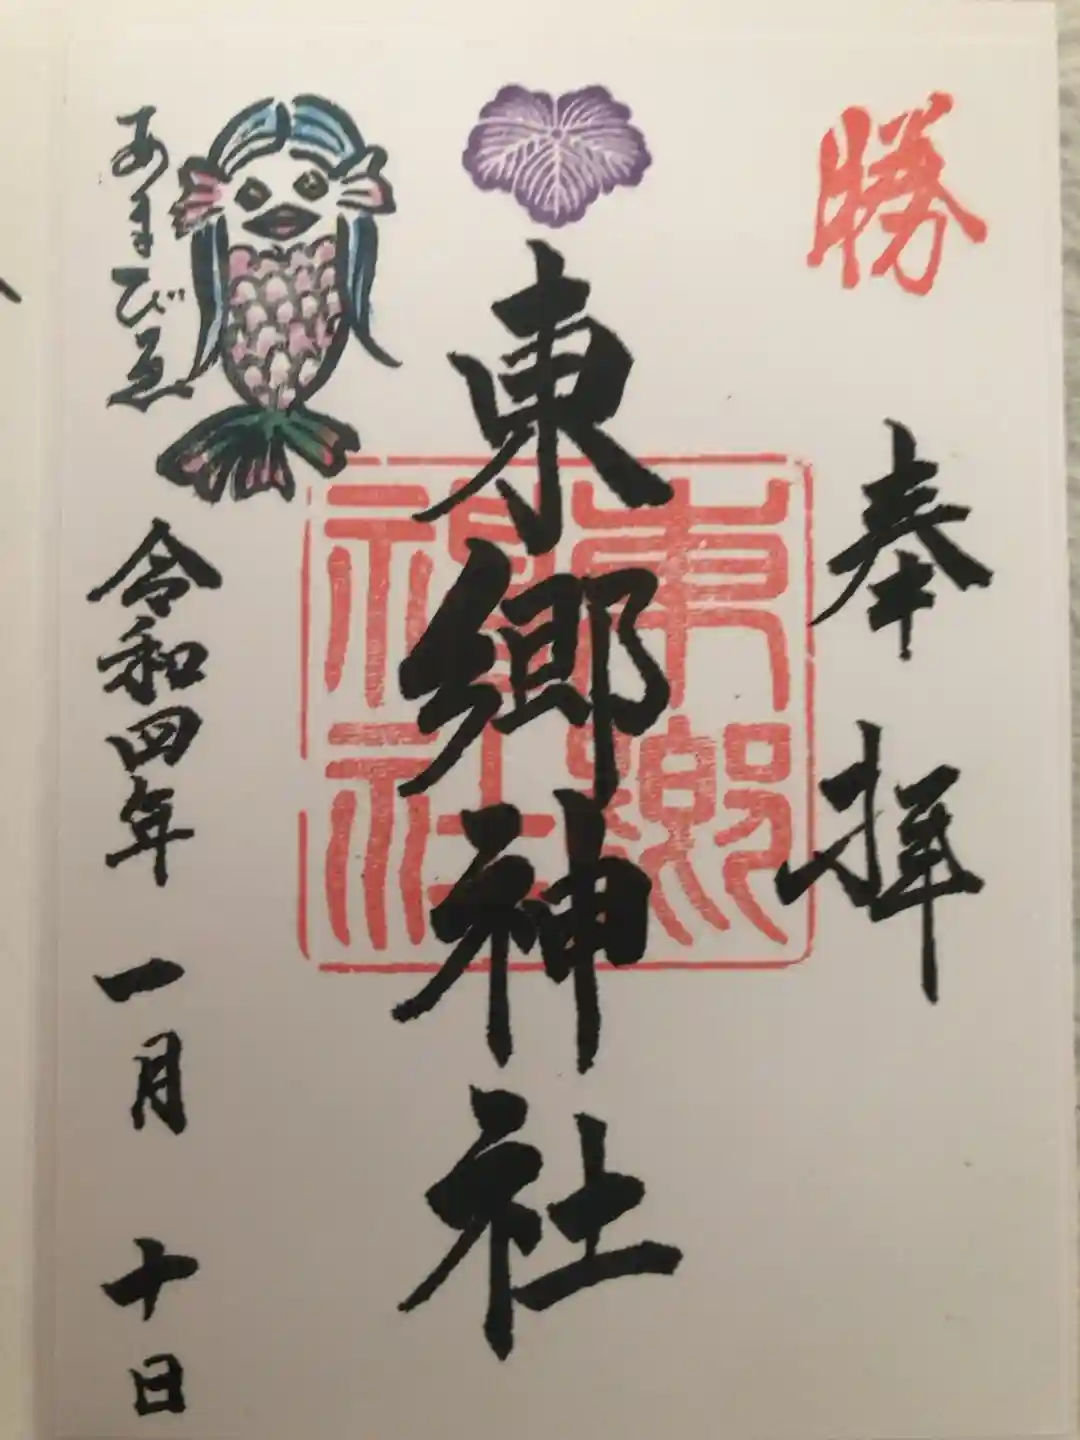 勝
奉拝
東郷神社
東郷神社
あまびゑ
令和四年 一月 十日